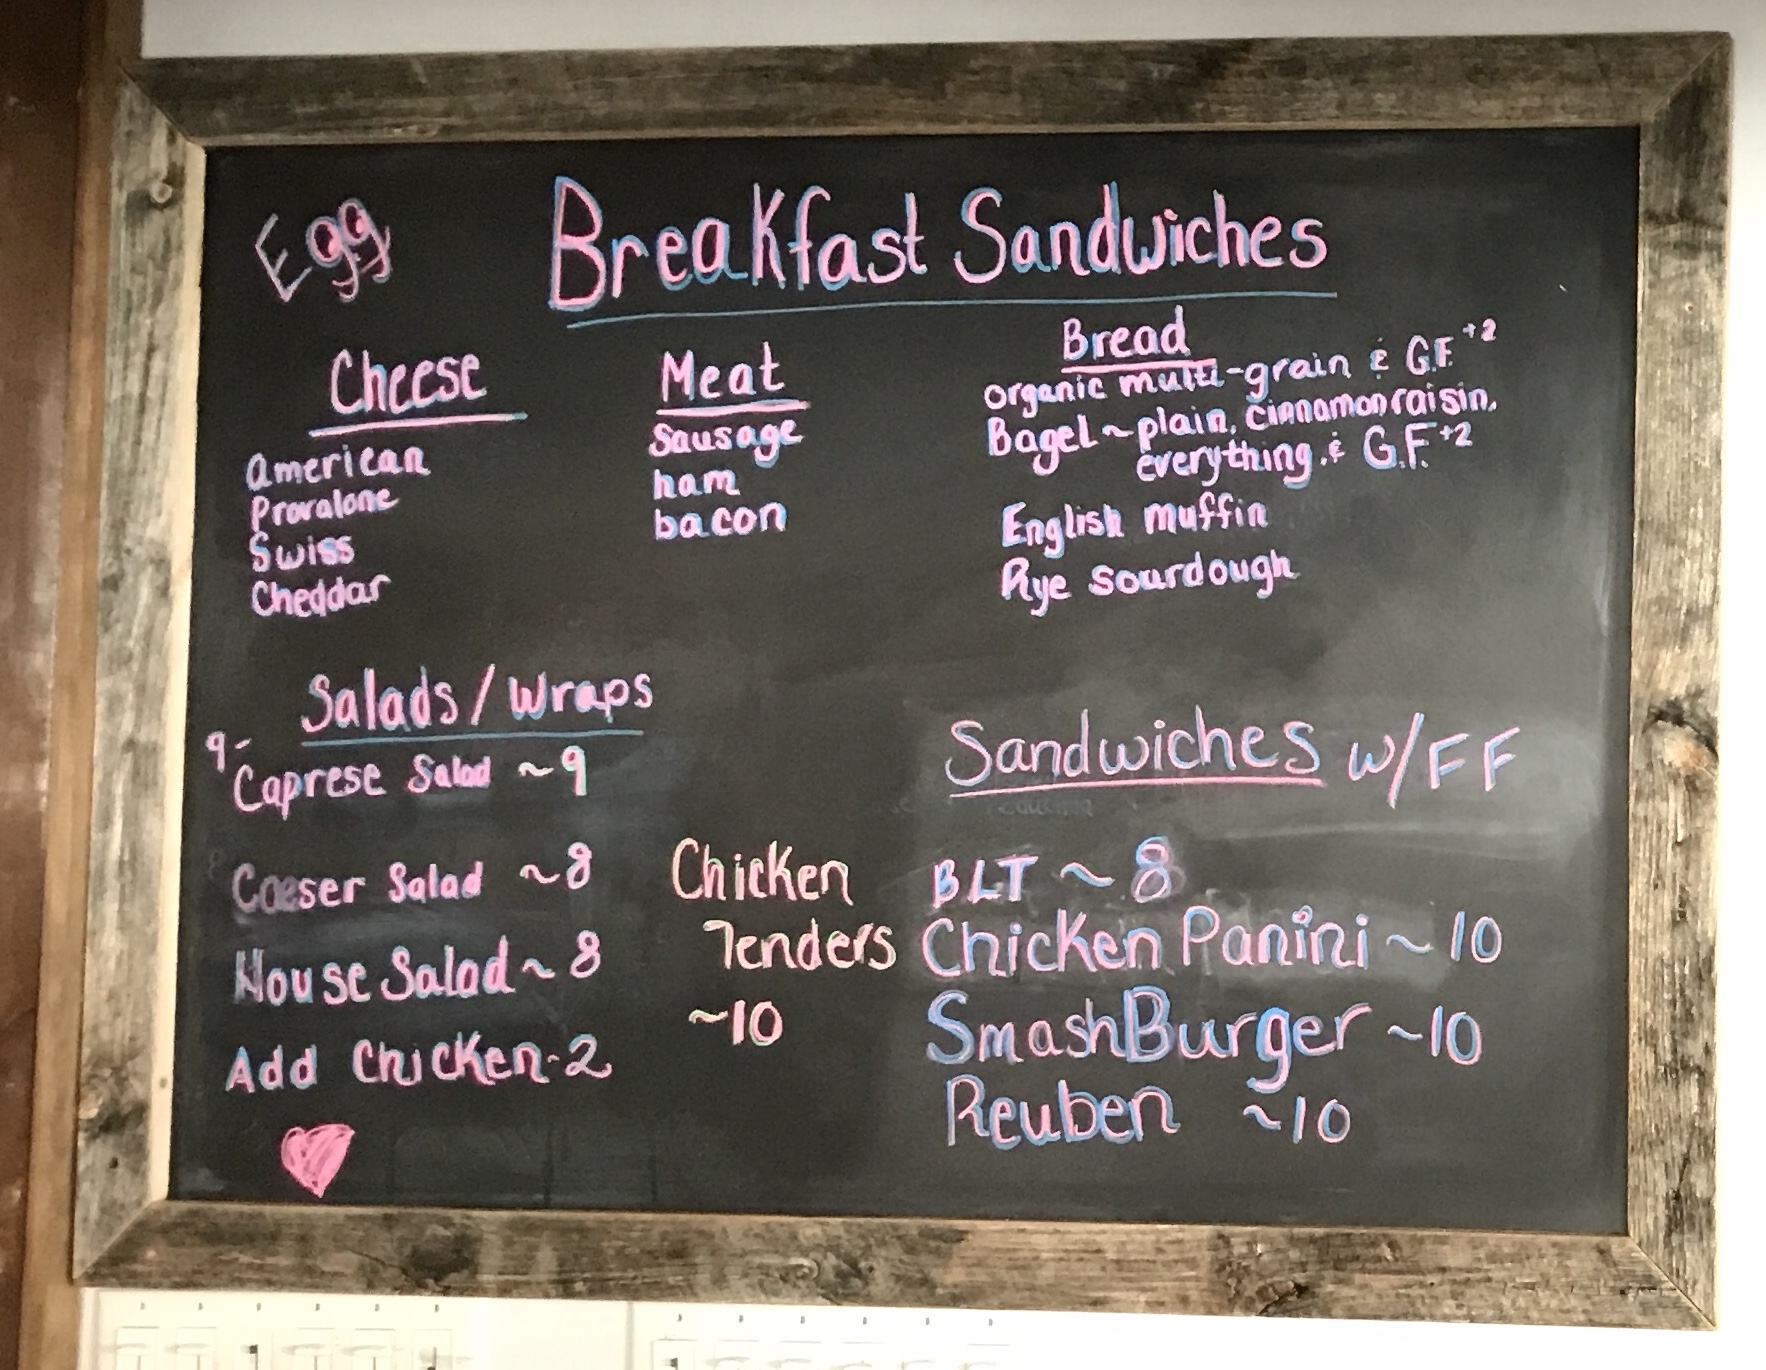 Egg
Breakfast Sandwiches
Cheese
American
Provalone
Swiss
Cheddar
Meat
Sausage
ham
bacon
Bread
organic multi-grain & G.F. +2
Bagel ~ plain, cinnamon raisin,
everything & G.F. +2
English muffin
Rye Sourdough
Salads / Wraps
9-
Caprese Salad ~ 9
Caeser Salad ~ 8
House Salad ~ 8
Add Chicken - 2
Chicken
Tenders
~10
Sandwiches w/ FF
BLT ~ 8
Chicken Panini ~ 10
SmashBurger ~10
Reuben ~10